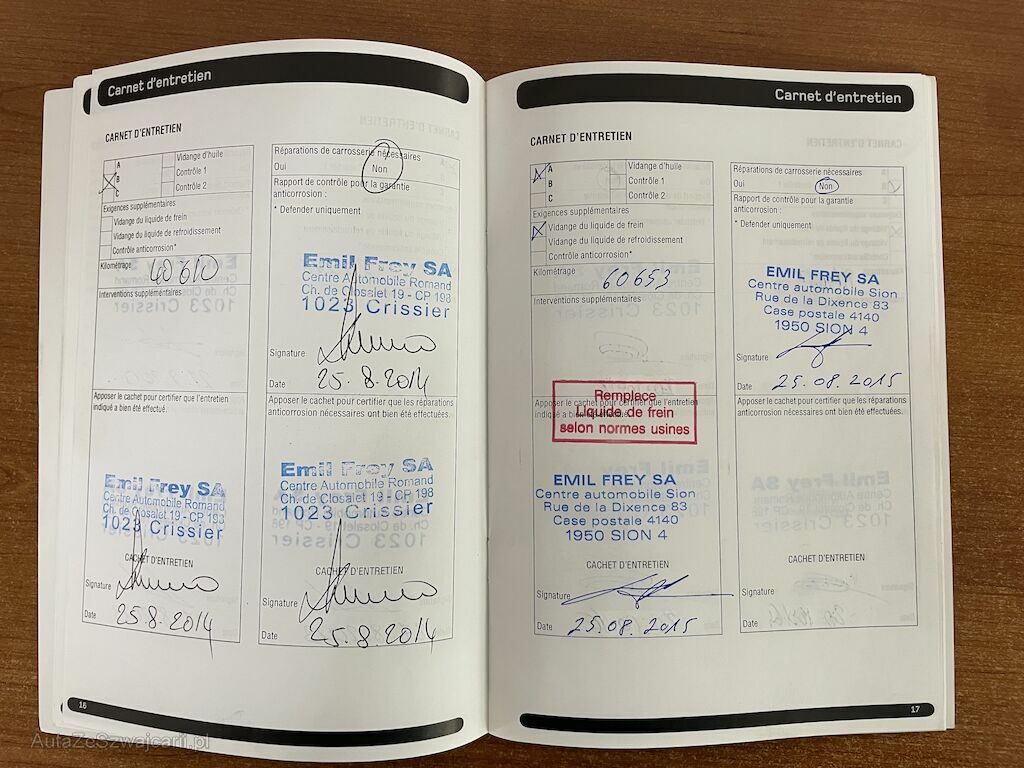 Carnet d'entretien
CARNET D'ENTRETIEN
A
B
C
Vidange d'huile
Contrôle 1
Contrôle 2
Exigences supplémentaires
Vidange du liquide de frein
Vidange du liquide de refroidissement
Contrôle anticorrosion*
Kilométrage 40610
Interventions supplémentaires
Apposer le cachet pour certifier que l'entretien
indiqué a bien été effectué.
Emil Frey SA
Centre Automobile Romand
Ch. de Closalet 19 - CP 198
1023 Crissier
CACHET D'ENTRETIEN
Signature
Date 25.8.2014
Réparations de carrosserie nécessaires
Oui Non
Rapport de contrôle pour la garantie
anticorrosion :
* Defender uniquement
Emil Frey SA
Centre Automobile Romand
Ch. de Closalet 19 - CP 198
1023 Crissier
Signature
Date 25.8.2014
Apposer le cachet pour certifier que les réparations
anticorrosion nécessaires ont bien été effectuées.
Emil Frey SA
Centre Automobile Romand
Ch. de Closalet 19 - CP 198
1023 Crissier
CACHET D'ENTRETIEN
Signature
Date 25.8.2014
16
Carnet d'entretien
CARNET D'ENTRETIEN
A
B
C
Vidange d'huile
Contrôle 1
Contrôle 2
Exigences supplémentaires
Vidange du liquide de frein
Vidange du liquide de refroidissement
Contrôle anticorrosion*
Kilométrage 60653
Interventions supplémentaires
Apposer le cachet pour certifier que l'entretien
indiqué a bien été effectué.
Remplace
Liquide de frein
selon normes usines
EMIL FREY SA
Centre automobile Sion
Rue de la Dixence 83
Case postale 4140
1950 SION 4
CACHET D'ENTRETIEN
Signature
Date 25.08.2015
Réparations de carrosserie nécessaires
Oui Non
Rapport de contrôle pour la garantie
anticorrosion :
* Defender uniquement
EMIL FREY SA
Centre automobile Sion
Rue de la Dixence 83
Case postale 4140
1950 SION 4
Signature
Date 25.08.2015
Apposer le cachet pour certifier que les réparations
anticorrosion nécessaires ont bien été effectuées.
CACHET D'ENTRETIEN
Signature
Date
17
AutaZeSzwajcarii.pl